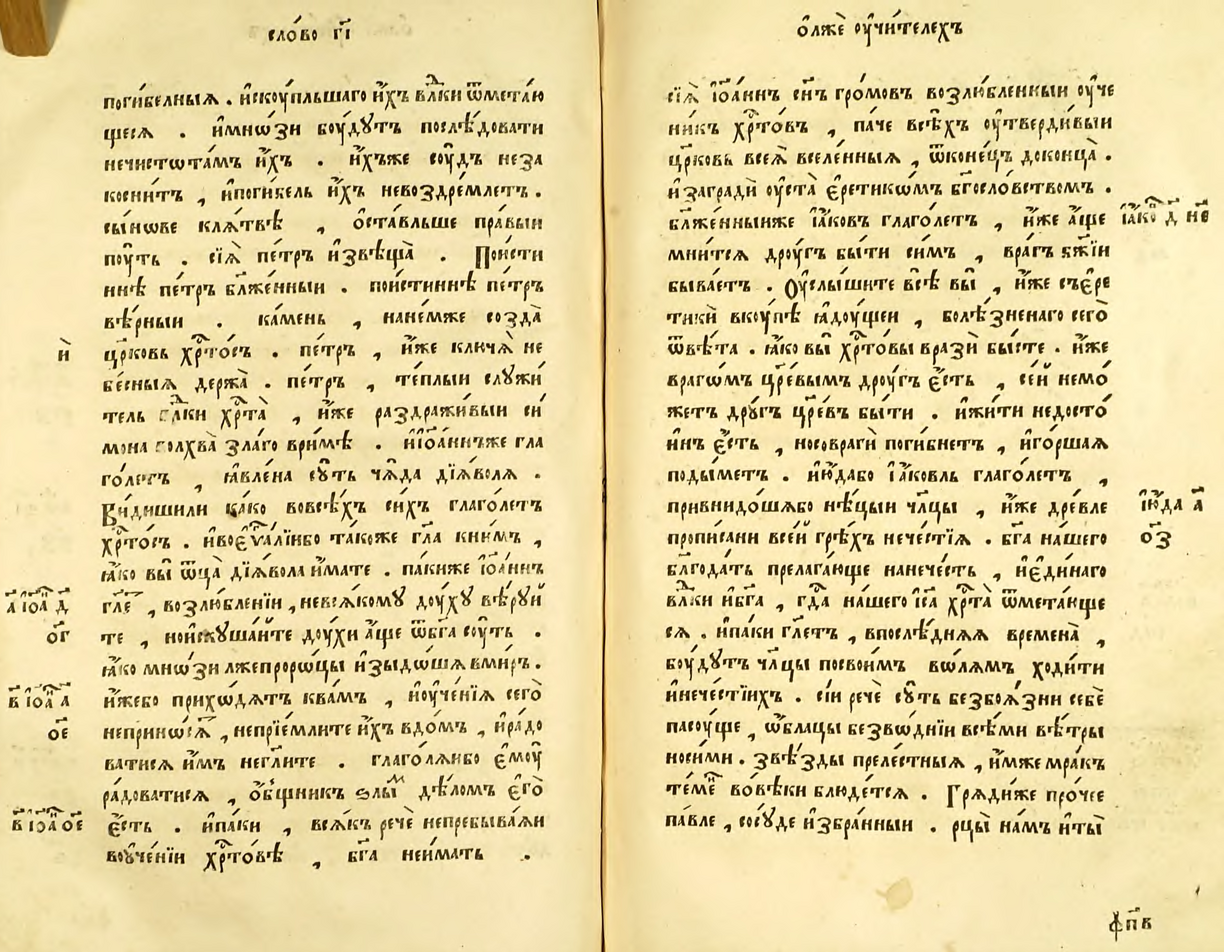 сло́во г҃і
поги́белныѧ . и҆скоу́пльшаго и҆́хъ влⷣки ѿмета́ю
щесѧ . и҆мнѡ́зи боу́дꙋтъ послѣ́довати
нечистѡта́мъ и҆́хъ . и҆́хъже соу́дъ неза
косни́тъ , и҆поги́бель и҆́хъ невоздре́млетъ .
сы́нѡве клѧ́твѣ , ѻ҆ста́вльше пра́выи
поу́ть . сїѧ̀ пе́тръ и҆звѣща̀ . Пои́сти
ннѣ пе́тръ бл҃же́нныи . пои́стиннѣ пе́тръ
вѣ́рныи . ка́мень , нане́мже созда̀
и҃
цр҃ковь хрⷭ҇то́съ . пе́тръ , и҆́же ключѧ̀ не
бе́сныѧ держа̀ . пе́тръ , те́плыи слꙋжи́
тель влⷣки хрⷭ҇та̀ , и҆́же раздражи́выи си́
мона волхва̀ зла́го в̾ри́мѣ . и҆і҆ѡа́ннъже гла
го́летъ , ꙗ҆вле́на сꙋ́ть ча̑да дїѧ́волѧ .
Ви́дишили ка́ко вовсѣ́хъ си́хъ глаго́летъ
хрⷭ҇то́съ . и҆воє҆ѵⷢ҇а́лїибо та́коже гл҃а кни́мъ ,
ꙗ҆́ко вы̀ ѿц҃а̀ дїѧ́вола и҆́мате . па́киже і҆ѡа́ннъ
а҃ і҆ѡа́ д҃
гл҃е , возлю́бленїи , невсѧ́комꙋ дꙋ́хꙋ вѣ́рꙋи
ѻ҃г
те , нои҆скꙋша́йте дꙋ́хи а҆́ще ѿбг҃а сꙋ́ть .
ꙗ҆́ко мнѡ́зи лжепроро́цы и҆зыдо́шѧ вми́ръ .
в҃ і҆ѡа́ а҃
и҆́жебо прихо́дѧтъ ква́мъ , и҆оу҆че́нїѧ сего̀
ѻ҃е
неприно́сѧ , неприе́млите и҆́хъ вдо́мъ , и҆ра́до
ватисѧ и҆́мъ негл҃ите . глаго́лѧибо є҆моу̀
ра́доватисѧ , ѻ҆́бщникъ ѕлы́мъ дѣ́ломъ є҆го̀
в҃ і҆ѡа́ ѻ҃е
є҆́сть . и҆па́ки , всѧ́къ речѐ непребыва́ѧи
воꙋче́нїи хрⷭ҇то́вѣ , бг҃а неи́мать .
ѻ҆лжѐ оу҆чи́телехъ
сїѧ̀ і҆ѡа́ннъ сн҃ъ гро́мовъ возлю́бленныи оу҆че
ни́къ хрⷭ҇то́въ , па́че всѣ́хъ оу҆тверди́выи
цр҃ковь всеѧ̀ вселе́нныѧ , ѿконе́цъ доконца̀ .
и҆заградѝ оу҆ста̀ є҆ретико́мъ бг҃осло́вствомъ .
бл҃же́нныиже і҆а́ковъ глаго́летъ , и҆́же а҆́ще
і҆а́ко д҃ н҃е
мни́тсѧ дрꙋ́гъ бы́ти си́мъ , вра́гъ бж҃їи
быва́етъ . Оу҆слы́шите всѣ̀ вы̀ , и҆́же съє҆ре
тикѝ вкꙋ́пѣ ꙗ҆дꙋ́щеи , болѣ́зненаго сего̀
ѿвѣ́та . ꙗ҆́ко вы̀ хрⷭ҇то́вы вразѝ бы́сте . и҆́же
враго́мъ цр҃е́вымъ дрꙋ́гъ є҆́сть , се́й немо́
жетъ дрꙋ́гъ цр҃е́въ бы́ти . и҆жи́ти недосто́
инъ є҆́сть , носоврагѝ поги́бнетъ , и҆го́ршаѧ
поды́метъ . и҆ію́дабо і҆а́ковль глаго́летъ ,
привнидо́шѧбо нѣ́цыи чл҃цы , и҆́же дре́вле
і҆ю́да а҃
прописани все́й грѣ́хъ нече́стїѧ . бг҃а на́шего
ѻ҃з
бл҃года́ть прелага́юще нанече́сть , и҆є҆ди́наго
влⷣки и҆бг҃а , гдⷭ҇а на́шего і҆и҃са хрⷭ҇та̀ ѿмета́юще
сѧ . и҆па́ки гл҃етъ , впослѣ́днѧѧ времена̀ ,
боу́дꙋтъ чл҃цы посвои́мъ во́лѧмъ ходи́ти
и҆нече́стїихъ . сі́и речѐ сꙋ́ть безбоѧ́зни себѐ
пасꙋ́ще , ѡ҆́блацы безво́днїи всѣ́ми вѣ́тры
носи́ми . ѕвѣ́зды преле́стныѧ , и҆́мже мра́къ
те́мⸯнѣ вовѣ́ки блюде́тсѧ . Грѧди́же про́чее
па́вле , сосꙋ́де и҆збра́нныи . рцы̀ на́мъ и҆ты̀
ф҃п҃в